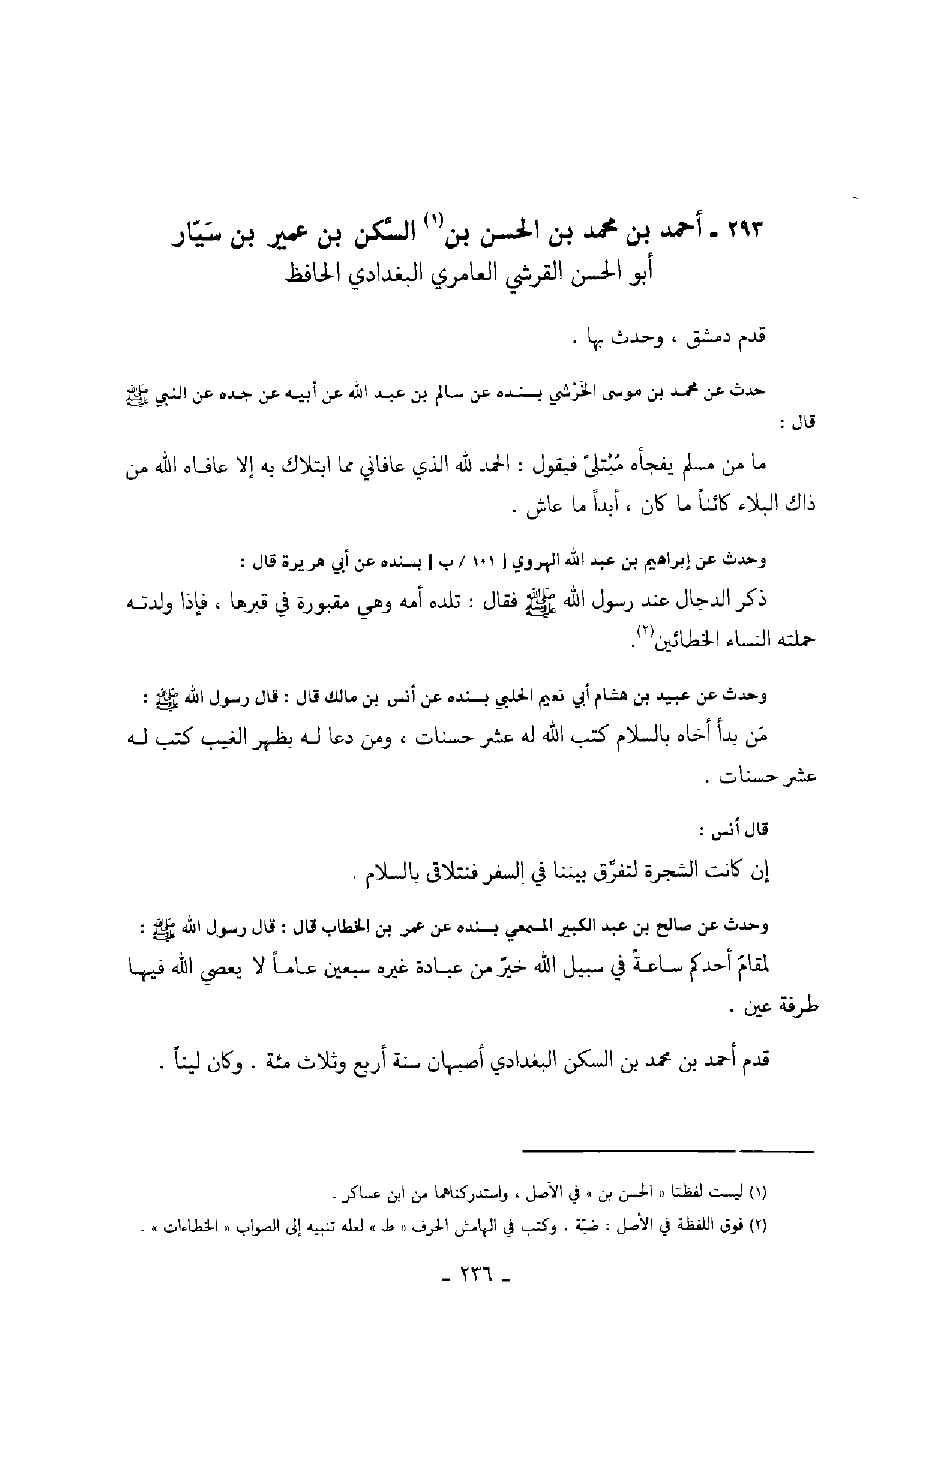 ٢٩٣ ـ أحمد بن محمد بن الحسن بن(١) السَّكن بن عمير بن سَيّار
أبو الحسن القرشي العامري البغدادي الحافظ
قدم دمشق ، وحدث بها .
حدث عن محمد بن موسى الحَرَشي بسنده عن سالم بن عبد الله عن أبيه عن جده عن النبي ﷺ
قال :
ما من مسلم يفجأه مُبْتلىً فيقول : الحمد لله الذي عافاني مما ابتلاك به إلا عافاه الله من
ذاك البلاء كائناً ما كان ، أبداً ما عاش .
وحدث عن إبراهيم بن عبد الله الهروي [ ١٠١ / ب ] بسنده عن أبي هريرة قال :
ذكر الدجال عند رسول الله ﷺ فقال : تلده أمه وهي مقبورة في قبرها ، فإذا ولدته
حملته النساء الخطائين(٢).
وحدث عن عبيد بن هشام أبي نعيم الحلبي بسنده عن أنس بن مالك قال : قال رسول الله ﷺ :
مَن بدأ أخاه بالسلام كتب الله له عشر حسنات ، ومن دعا له بظهر الغيب كتب له
عشر حسنات .
قال أنس :
إن كانت الشجرة لتفرَّق بيننا في السفر فنتلاقى بالسلام .
وحدث عن صالح بن عبد الكبير المسمعي بسنده عن عمر بن الخطاب قال : قال رسول الله ﷺ :
لمقامُ أحدكم ساعةً في سبيل الله خيرٌ من عبادة غيره سبعين عاماً لا يعصي الله فيها
طرفة عين .
قدم أحمد بن محمد بن السكن البغدادي أصبهان سنة أربع وثلاث مئة . وكان ليناً .
(١) ليست لفظتا « الحسن بن » في الأصل ، واستدركناهما من ابن عساكر .
(٢) فوق اللفظة في الأصل : ضبّة . وكتب في الهامش الحرف « ط » لعله تنبيه إلى الصواب « الخطاءات » .
ـ ٢٣٦ ـ